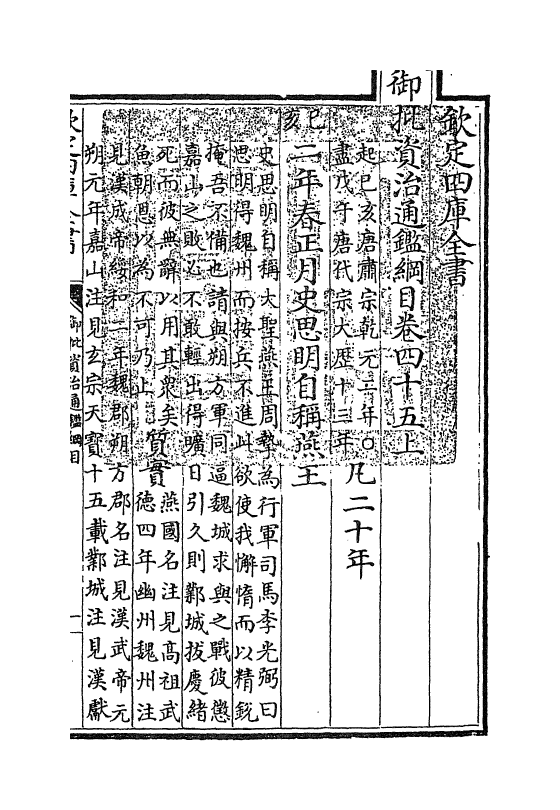 欽定四庫全書
御批資治通鑑綱目卷四十五上
起己亥唐肅宗乾元二年○
盡戊午唐代宗大歴十三年
凡二十年
己亥
二年春正月史思明自稱燕王
史思明自稱大聖燕王周摯為行軍司馬李光弼曰
思明得魏州而按兵不進此欲使我懈惰而以精銳
掩吾不備也請與朔方軍同逼魏城求與之戰彼懲
嘉山之敗必不敢輕出得曠日引久則鄴城拔慶緒
死而彼無辭以用其衆矣
魚朝恩以為不可乃止
質實
燕國名注見高祖武
德四年幽州魏州注
見漢成帝綏和二年魏郡朔方郡名注見漢武帝元
朔元年嘉山注見玄宗天寳十五載鄴城注見漢獻
欽定四庫全書
御批資治通鑑綱目
一